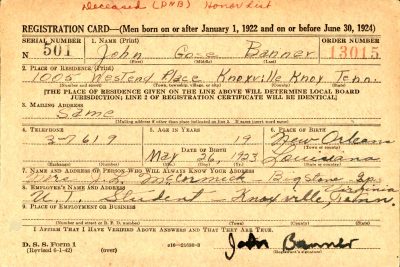 Deceased (DNB) Honor List
REGISTRATION CARD—(Men born on or after January 1, 1922 and on or before June 30, 1924)
SERIAL NUMBER 1. NAME (Print) ORDER NUMBER
N 501 John Banner 13015
(First) (Middle) (Last)
2. PLACE OF RESIDENCE (Print)
1005 Westend Place Knoxville Knox Tenn.
(Number and street) (Town, township, village, or city) (County) (State)
[THE PLACE OF RESIDENCE GIVEN ON THE LINE ABOVE WILL DETERMINE LOCAL BOARD
JURISDICTION; LINE 2 OF REGISTRATION CERTIFICATE WILL BE IDENTICAL]
3. MAILING ADDRESS
Same
(Mailing address if other than place indicated on line 2. If same insert word same)
4. TELEPHONE 5. AGE IN YEARS 6. PLACE OF BIRTH
3-7619 19 New Orleans
DATE OF BIRTH (Town or county)
May 26, 1923 Louisiana
(Exchange) (Number) (Mo.) (Day) (Yr.) (State or country)
7. NAME AND ADDRESS OF PERSON WHO WILL ALWAYS KNOW YOUR ADDRESS
Mrs. McCormick - Big Stone Gap
Virginia
8. EMPLOYER'S NAME AND ADDRESS
U.T. Student - Knoxville, Tenn.
9. PLACE OF EMPLOYMENT OR BUSINESS
(Number and street or R. F. D. number) (Town) (County) (State)
I AFFIRM THAT I HAVE VERIFIED ABOVE ANSWERS AND THAT THEY ARE TRUE.
D. S. S. Form 1
(Revised 6-1-42) (over) John Banner
(Registrant's signature)